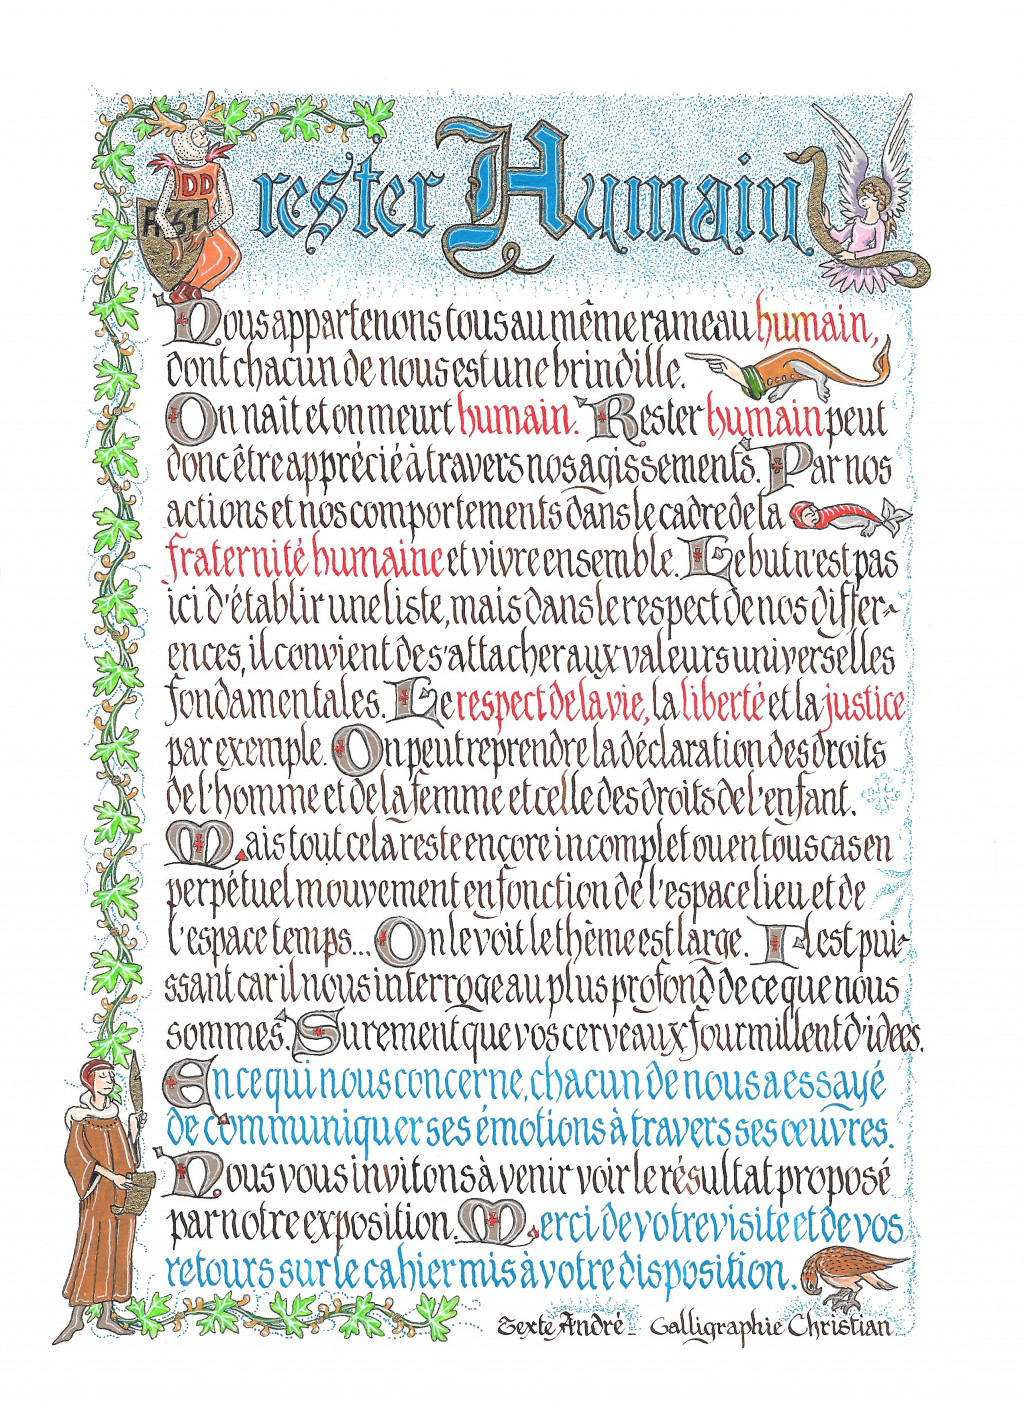 DD
rester Humain
Nous appartenons tous au même rameau humain,
dont chacun de nous est une brindille.
On naît et on meurt humain. Rester humain peut
donc être apprécié à travers nos agissements. Par nos
actions et nos comportements dans le cadre de la
fraternité humaine et vivre ensemble. Le but n'est pas
ici d'établir une liste, mais dans le respect de nos differ-
ences, il convient de s'attacher aux valeurs universelles
fondamentales. Le respect de la vie, la liberté et la justice
par exemple. On peut reprendre la déclaration des droits
de l'homme et de la femme et celle des droits de l'enfant.
Mais tout cela reste encore incomplet ou en tous cas en
perpétuel mouvement en fonction de l'espace lieu et de
l'espace temps... On le voit le thème est large. Il est pui-
ssant car il nous interroge au plus profond de ce que nous
sommes. Surement que vos cerveaux fourmillent d'idees.
En ce qui nous concerne, chacun de nous a essayé
de communiquer ses émotions à travers ses œuvres.
Nous vous invitons à venir voir le résultat proposé
par notre exposition. Merci de votre visite et de vos
retours sur le cahier mis à votre disposition.
Texte André - Calligraphie Christian